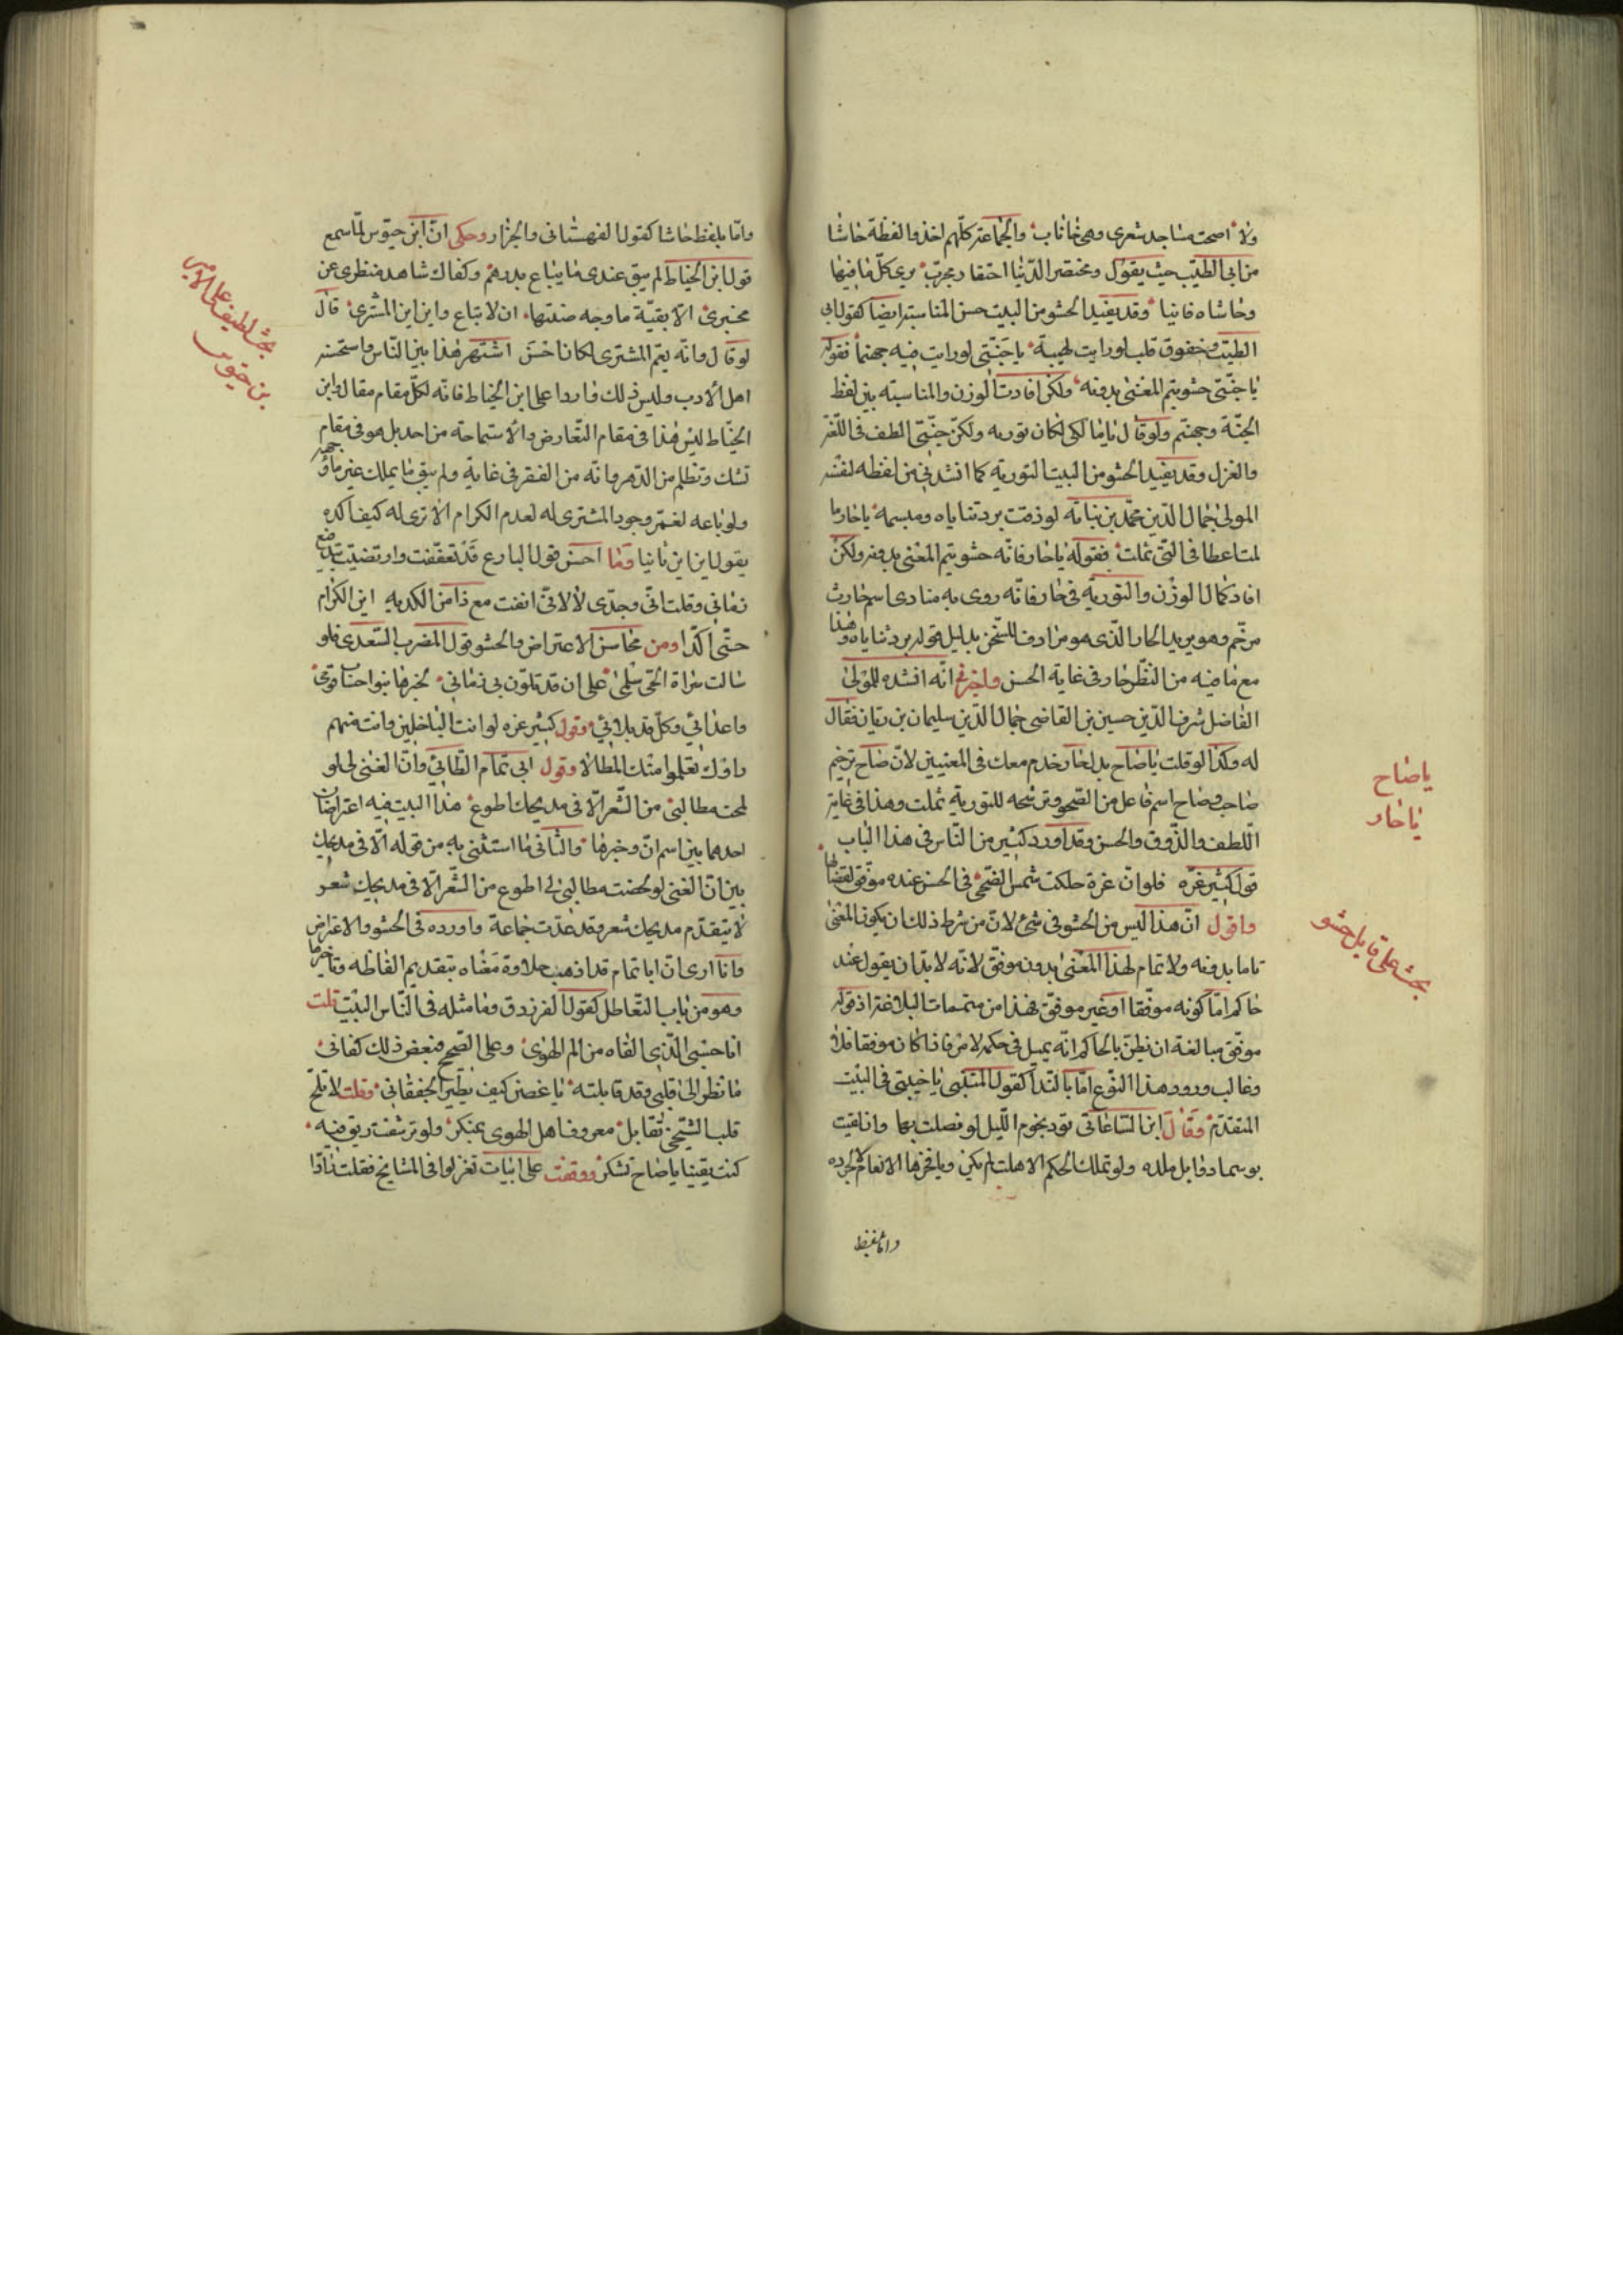 ولا اصحت مساجد شعرى وهى خاناب والجماعة كلهم اخذوا لفظة حاشا
من ابى الطيّب حيث يقول ومحتقر الدّنيا احتقار مجرّب يرى كلّ ما فيها
وحاشاه فانيا وقد يفيد الحشو من البيت حسن المناسبة ايضا كقول ابى
الطيّب وخفوق قلب لو رايت لهيبه يا جنّتى لو رايت فيه جهنما فقوله
يا جنّتى حشو يتم المعنى بدونه ولكن افادت الوزن والمناسبة بين لفظ
الجنّة وجهنّم ولو قال يا مالكى لكان تورية ولكن جنّتى الطف فى اللّغز
والغزل وقد يفيد الحشو من البيت التورية كما انشدنى من لفظه لنفسه
المولى جمال الدّين محمّد بن نباتة لو ذقت برد ثناياه ومبسمه يا حار ما
لمت اعطافى التى ثملت فقوله يا حار فانّه حشو يتم المعنى بدونه ولكن
افاد كمال الوزن والتورية فى حار فانّه روى به منادى اسم حارث
مرخّم وهو يريد الحار الّذى هو مرادف للسّخن بدليل قوله برد ثناياه وهذا
مع ما فيه من النظر حار فى غاية الحسن واخبرنى انّه انشده للمولى
الفاضل شرف الدّين حسين بن القاضى جمال الدّين سليمان بن ريان فقال
له وكذا لو قلت يا صاح بدل حار خدم معك فى المعنيين لانّ صاح ترخيم
صاحب وصاح اسم فاعل من الصّحو وترشحه للتورية ثملت وهذا فى غاية
اللّطف والذّوق والحسن وقد اورد كثير من النّاس فى هذا الباب
قول كثير عزّه فلو انّ عزة حاكمت شمس الضّحى فى الحسن عنده موفّق لقضى لها
واقول انّ هذا ليس من الحشو فى شئ لانّ من شرط ذلك ان يكون المعنى
تاما بدونه ولا تمام لهذا المعنى بدون موفّق لانّه لا بدّ ان يقول عند
حاكم امّا كونه موفّقا او غير موفّق فهذا من متممات البلاغة اذ قوله
موفّق مبالغة ان يظنّ بالحاكم انّه يميل فى حكمه لامر فاذا كان موفقا فلا
وغالب ورود هذا النّوع امّا بالنّدآ كقول المتنبّى يا خيبتى فى البيت
المتقدّم وقال ابن السّاعاتى تود نجوم اللّيل لو فصلت بها وان لقيت
بوسما دوابل ملده ولو تملك الحكم الاهلة لم يكن ويا فخرها الا نعالا لجرده
واما بلفظ
يا صاح
يا حار
بحث على قابل حشو
وامّا بلفظ حاشا كقول القهستانى والجزار وحكى انّ ابن حيّوس لمّا سمع
قول ابن الخياط لم يبق عندى ما يباع بدرهم وكفاك شاهد منظرى عن
مخبرى الّا بقيّة ما وجه صنتها ان لا تباع واين اين المشترى قال
لو قال وانّه يعم المشترى لكان احسن اشتهر هذا بين النّاس واستحسنه
اهل الادب وليس ذلك واردا على ابن الخياط فانّه لكلّ مقام مقال وابن
الخيّاط ليس هذا فى مقام التّعارض والاستماحة من احد بل هو فى مقام
تشك وتظلم من الدّهر وانّه من الفقر فى غاية ولم يبق ما يملك غير مآء وجهه
ولو باعه لغمر وجود المشترى له لعدم الكرام الا ترى له كيف اكده
يقول اين اين ثانيا وما احسن قول البارع قد تعفّفت وارتضيت بتضييع
زمانى وقلت انّى وجدّى لا لانّى انفت مع ذا من الكدية اين الكرام
حتّى اكدّا ومن محاسن الاعتراض والحشو قول المضرب السّعدى فلو
سالت سراة الحّى سلمى على ان قد تلوّن بى زمانى لخبرها بنوا احساب قومى
واعدائى وكلّ قد بلانى وقول كثير عزه لو انت الباخلين وانت منهم
راوك تعلموا منك المطالا وقول ابى تمّام الطّائى وانّ الغنى لى لو
لحت مطالبى من الشّعر الّا فى مديحك اطوع هذا البيت فيه اعتراضان
احدهما بين اسم انّ وخبرها والثانى ما استثنى به من قوله الّا فى مديحك
بين انّ الغنى لو لحضت مطالبى لى اطوع من الشّعر الّا فى مديحك شعر
لا يتقدّم مديحك شعر وقد عدّت جماعة واورده فى الحشو والاعتراض
وانا ارى انّ ابا تمام قد اذهب حلاوة معناه بتقديم الفاظه وتاخيرها
وهو من باب التّعاطل كقول الفرزدق وما مثله فى النّاس البيت قلت
انا حسبى الّذى القاه من الم الهوى وعلى الصّحيح فبعض ذلك كفانى
ما تنظر الى قلبى وقد قابلته يا غصن كيف يطير الخفقانى وقلت لا تلح
قلب الشّجى تقابل معروف اهل الهوى بمنكر ولو ترشفت ريق فيه
كنت يقينا يا صاح تسكر ووقفت على ابيات تغزلوا فى المشايخ فقلت زادا
بحث لطيف على الامير
بن حيّوس